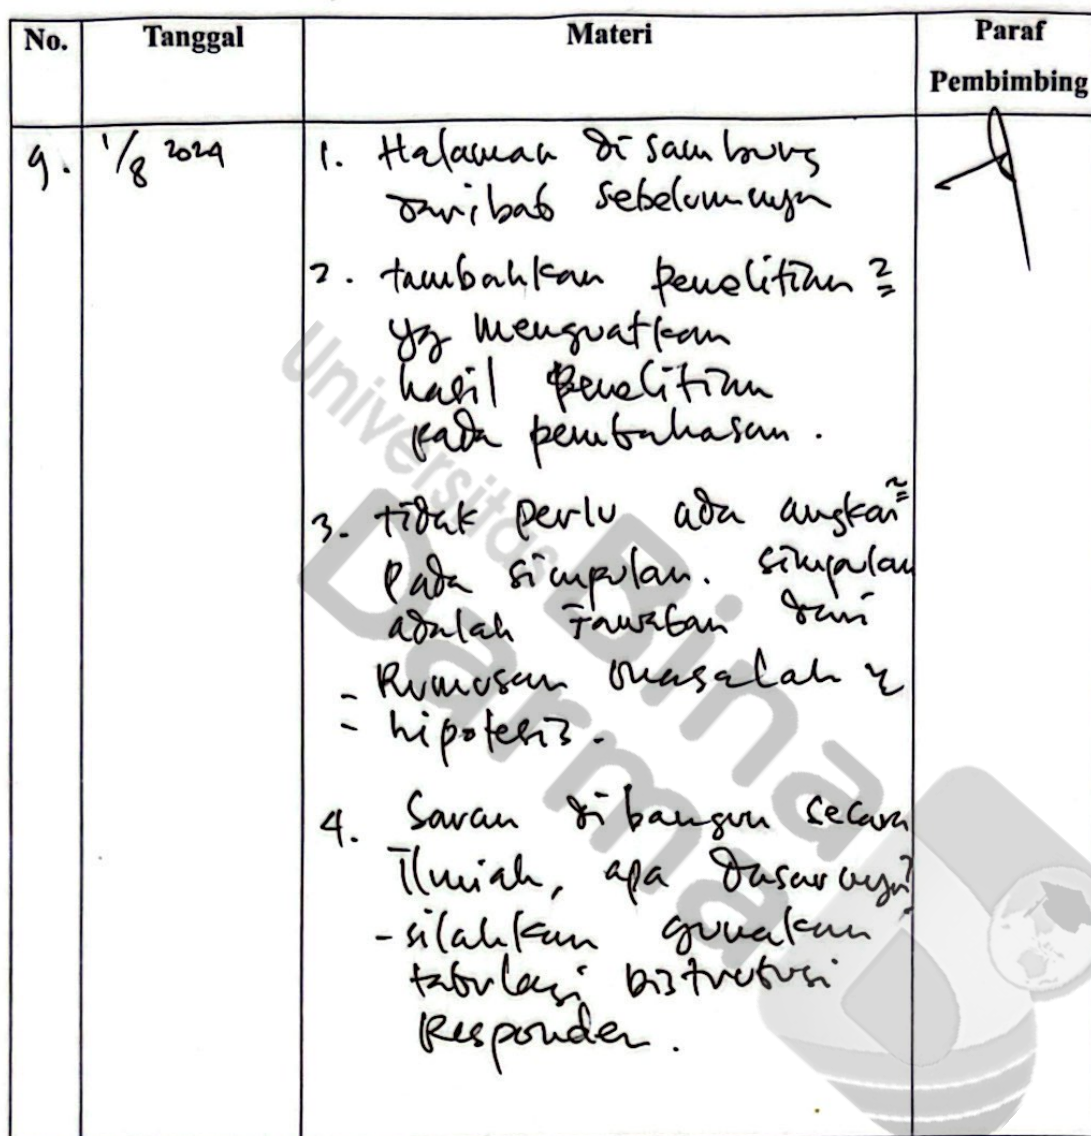 No. Tanggal Materi Paraf
Pembimbing
9. 1/8 2024 1. Halaman disambung
dari bab sebelumnya
2. tambahkan penelitian2
yg menguatkan
hasil penelitian
pada pembahasan.
3. tidak perlu ada angka2
pada simpulan. simpulan
adalah jawaban dari
- Rumusan masalah &
- hipotesis.
4. Saran dibangun secara
Ilmiah, apa dasarnya?
- silahkan gunakan
tabulasi distribusi
Responden.
Universitas
Bina
Darma